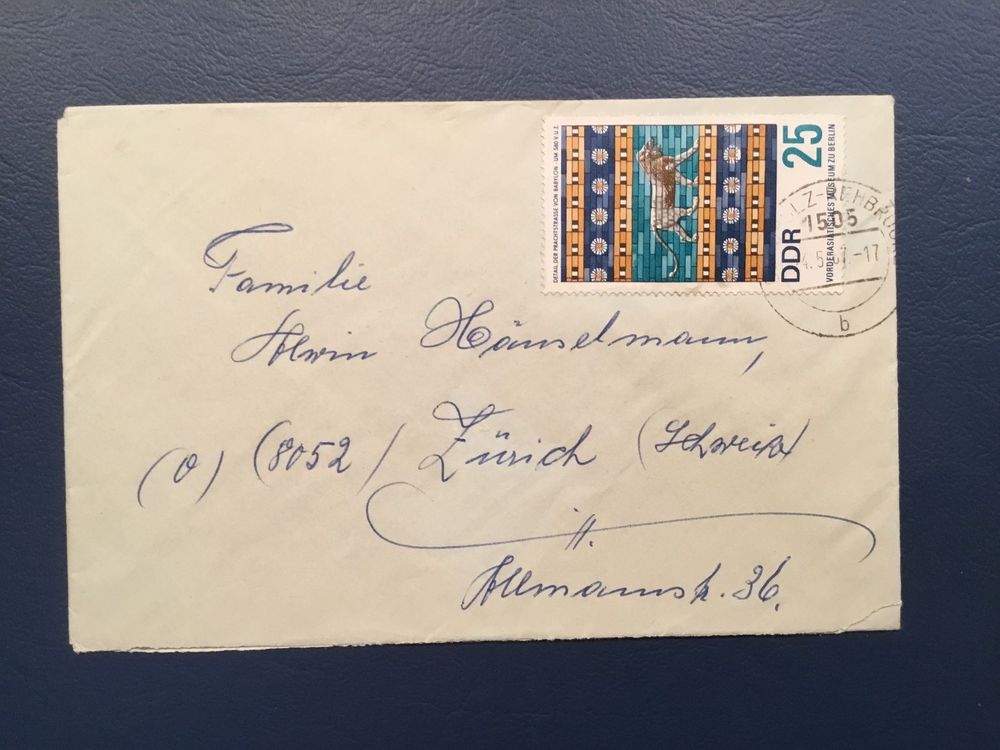 DETAIL DER PRACHTSTRASSE VON BABYLON · UM 580 V.U.Z.
25
DDR
VORDERASIATISCHES MUSEUM ZU BERLIN
1505
4.5. -17
b
Familie
Alwin Hänselmann,
(O) (8052) Zürich (Schweiz)
Allmannstr. 36.